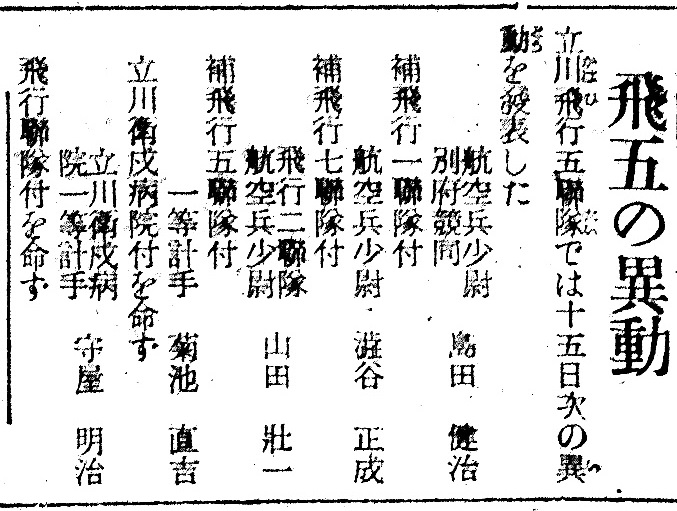 飛五の異動
立川飛行五聯隊では十五日次の異
動を発表した
航空兵少尉
別府競 島田 健治
補飛行一聯隊付
航空兵少尉 澁谷 正成
補飛行七聯隊付
飛行二聯隊
航空兵少尉 山田 壯一
補飛行五聯隊付
一等計手 菊池 直吉
立川衛戍病院付を命ず
立川衛戍病
院一等計手 守屋 明治
飛行聯隊付を命ず